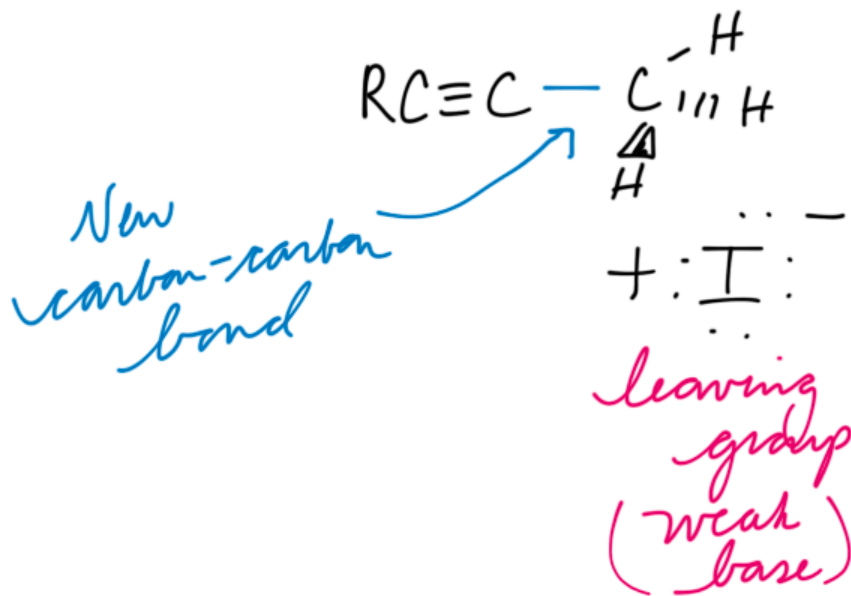 RC≡C — C – H
H
H
New
carbon-carbon
bond
+ :I: –
leaving
group
(weak
base)